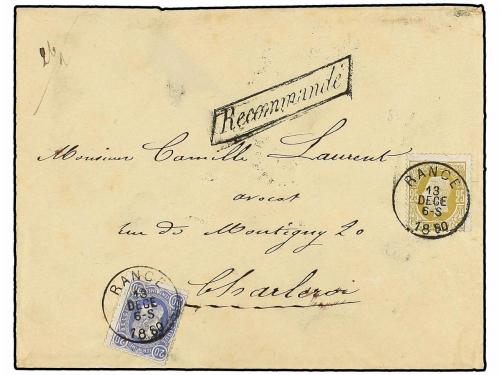 Recommandé
Monsieur Camille Laurent
avocat
rue de Montigny 20
Charleroi
RANCE
13
DECE
6-S
1880
RANCE
13
DECE
6-S
1880
20 20